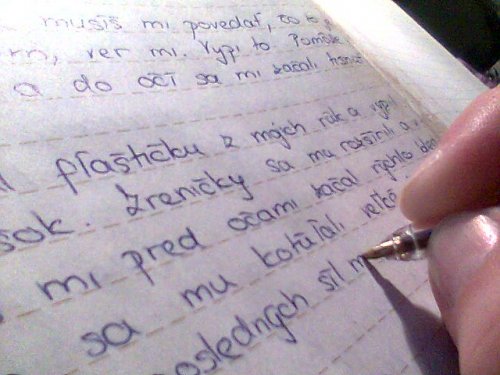 musíš mi povedať, čo to
ver mi. Vypi to. Pomôže
a do očí sa mi začali
fľaštičku z mojich rúk a vypil
šok. Zreničky sa mu rozšírili a
mi pred očami začal rýchlo
sa mu kotúľali veľké
posledných síl